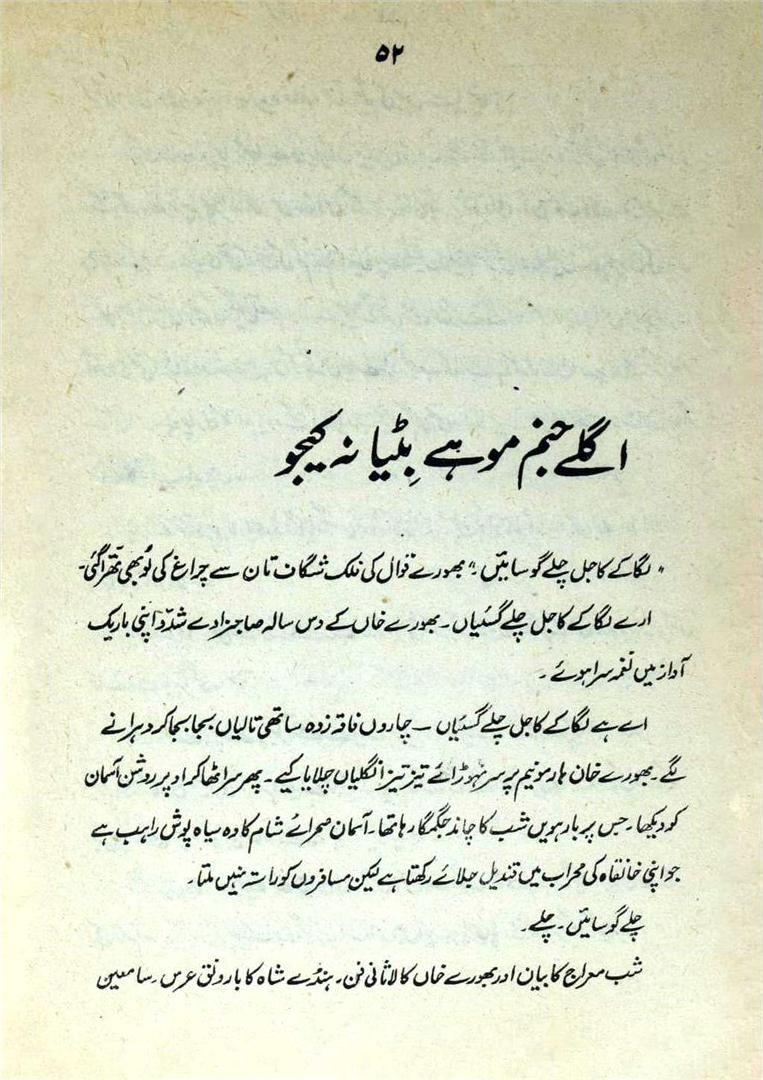 ۵۲
اگلے جنم موہے بِٹیا نہ کیجو
" لگا کے کاجل چلے گوسائیں ۔" بھورے قوال کی فلک شگاف تان سے چراغ کی لَو بھی تھرّا گئی۔
ارے لگا کے کاجل چلے گسیّاں ۔ بھورے خاں کے دس سالہ صاحبزادے شدّو اپنی باریک
آواز میں نغمہ سرا ہوئے ۔
اے ہے لگا کے کاجل چلے گسیّاں — چاروں فاقہ زدہ ساتھی تالیاں بجا بجا کر دہرانے
لگے ۔ بھورے خان ہارمونیم پر سر نہوڑائے تیز تیز انگلیاں چلایا کیے ۔ پھر سر اٹھا کر اوپر روشن آسمان
کو دیکھا۔ جس پر بارہویں شب کا چاند جگمگا رہا تھا۔ آسمان صحرائے شام کا وہ سیاہ پوش راہب ہے
جو اپنی خانقاہ کی محراب میں قندیل جلائے رکھتا ہے لیکن مسافروں کو راستہ نہیں ملتا ۔
چلے گوسائیں ۔ چلے ۔
شب معراج کا بیان اور بھورے خاں کا لاثانی فن ۔ ہنڈے شاہ کا بارونق عرس ۔ سامعین